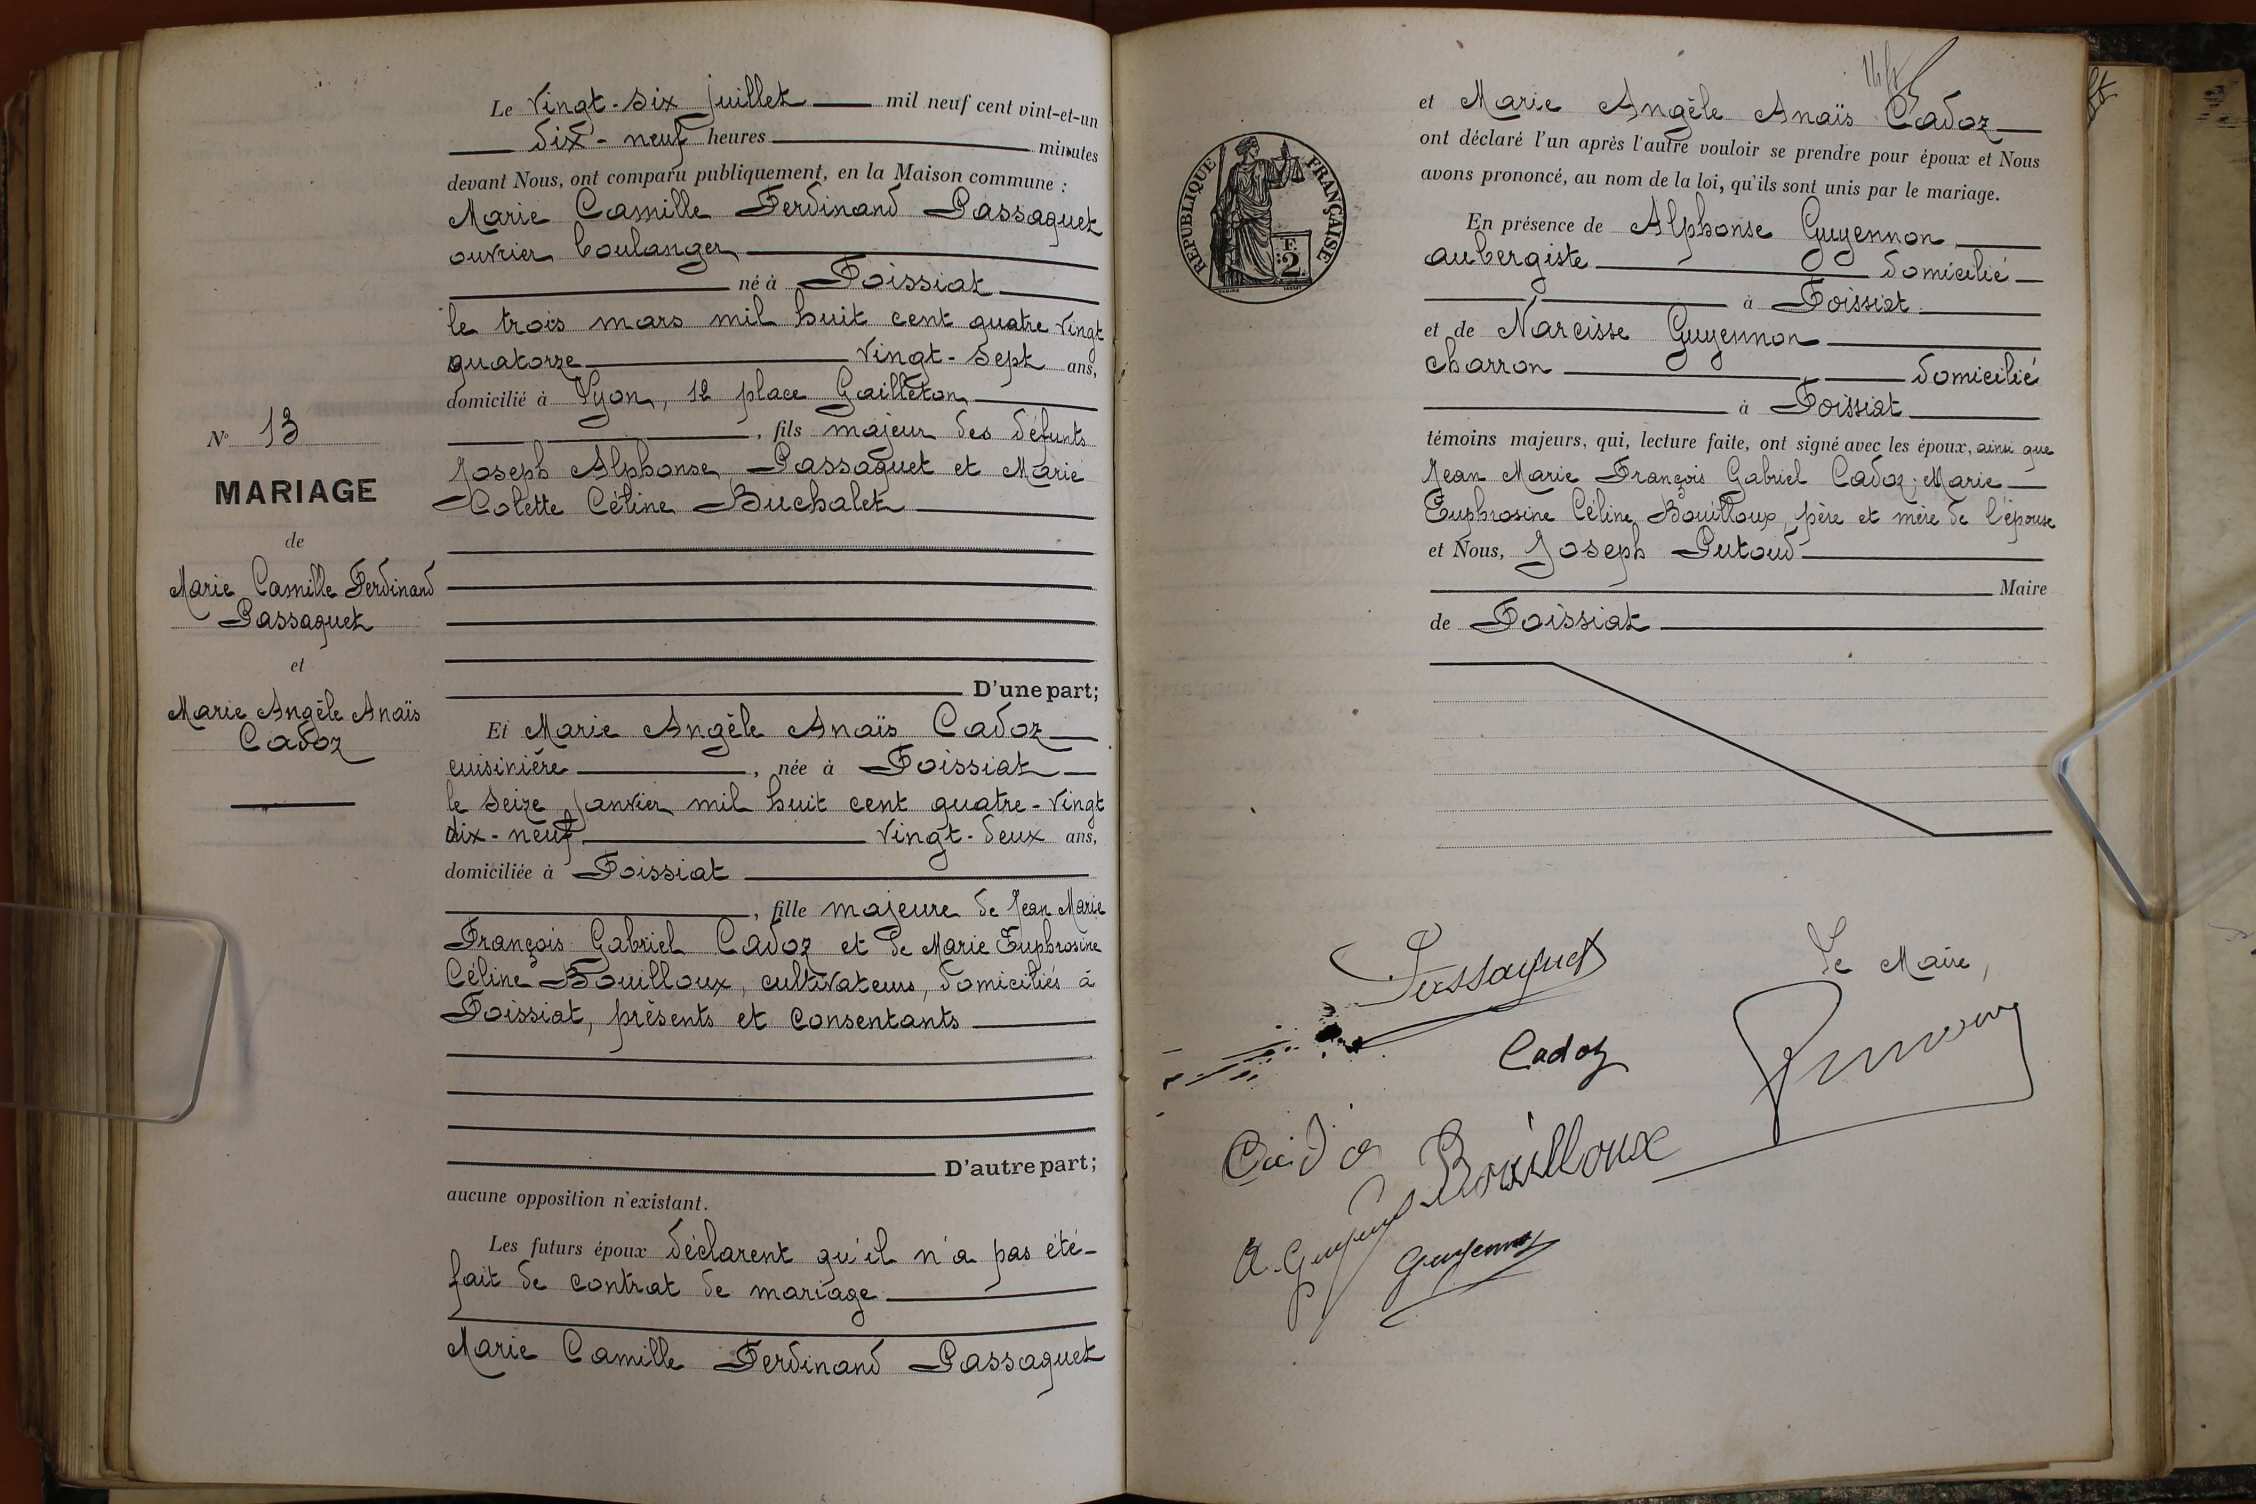 N° 13
MARIAGE
de
Marie Camille Ferdinand
Passaquet
et
Marie Angèle Anaïs
Cadoz
Le vingt-six juillet mil neuf cent vint-et-un
dix-neuf heures minutes
devant Nous, ont comparu publiquement, en la Maison commune :
Marie Camille Ferdinand Passaquet
ouvrier boulanger
né à Foissiat
le trois mars mil huit cent quatre vingt
quatorze vingt-sept ans,
domicilié à Lyon, 12 place Gailleton
, fils majeur des défunts
Joseph Alphonse Passaquet et Marie
Colette Céline Buchalet
D'une part;
Et Marie Angèle Anaïs Cadoz
cuisinière , née à Foissiat
le seize janvier mil huit cent quatre-vingt
dix-neuf vingt-deux ans,
domiciliée à Foissiat
, fille majeure de Jean Marie
François Gabriel Cadoz et de Marie Euphrosine
Céline Bouilloux, cultivateurs, domiciliés à
Foissiat, présents et consentants
D'autre part;
aucune opposition n'existant.
Les futurs époux déclarent qu'il n'a pas été
fait de contrat de mariage
Marie Camille Ferdinand Passaquet
et Marie Angèle Anaïs Cadoz
ont déclaré l'un après l'autre vouloir se prendre pour époux et Nous
avons prononcé, au nom de la loi, qu'ils sont unis par le mariage.
RÉPUBLIQUE FRANÇAISE
F.
2
En présence de Alphonse Guyennon
aubergiste domicilié
à Foissiat
et de Narcisse Guyennon
charron domicilié
à Foissiat
témoins majeurs, qui, lecture faite, ont signé avec les époux, ainsi que
Jean Marie François Gabriel Cadoz, Marie
Euphrosine Céline Bouilloux, père et mère de l'épouse
et Nous, Joseph Putoud
Maire
de Foissiat
Passaquet
Le Maire,
Cadoz
Bouilloux
Guyennon